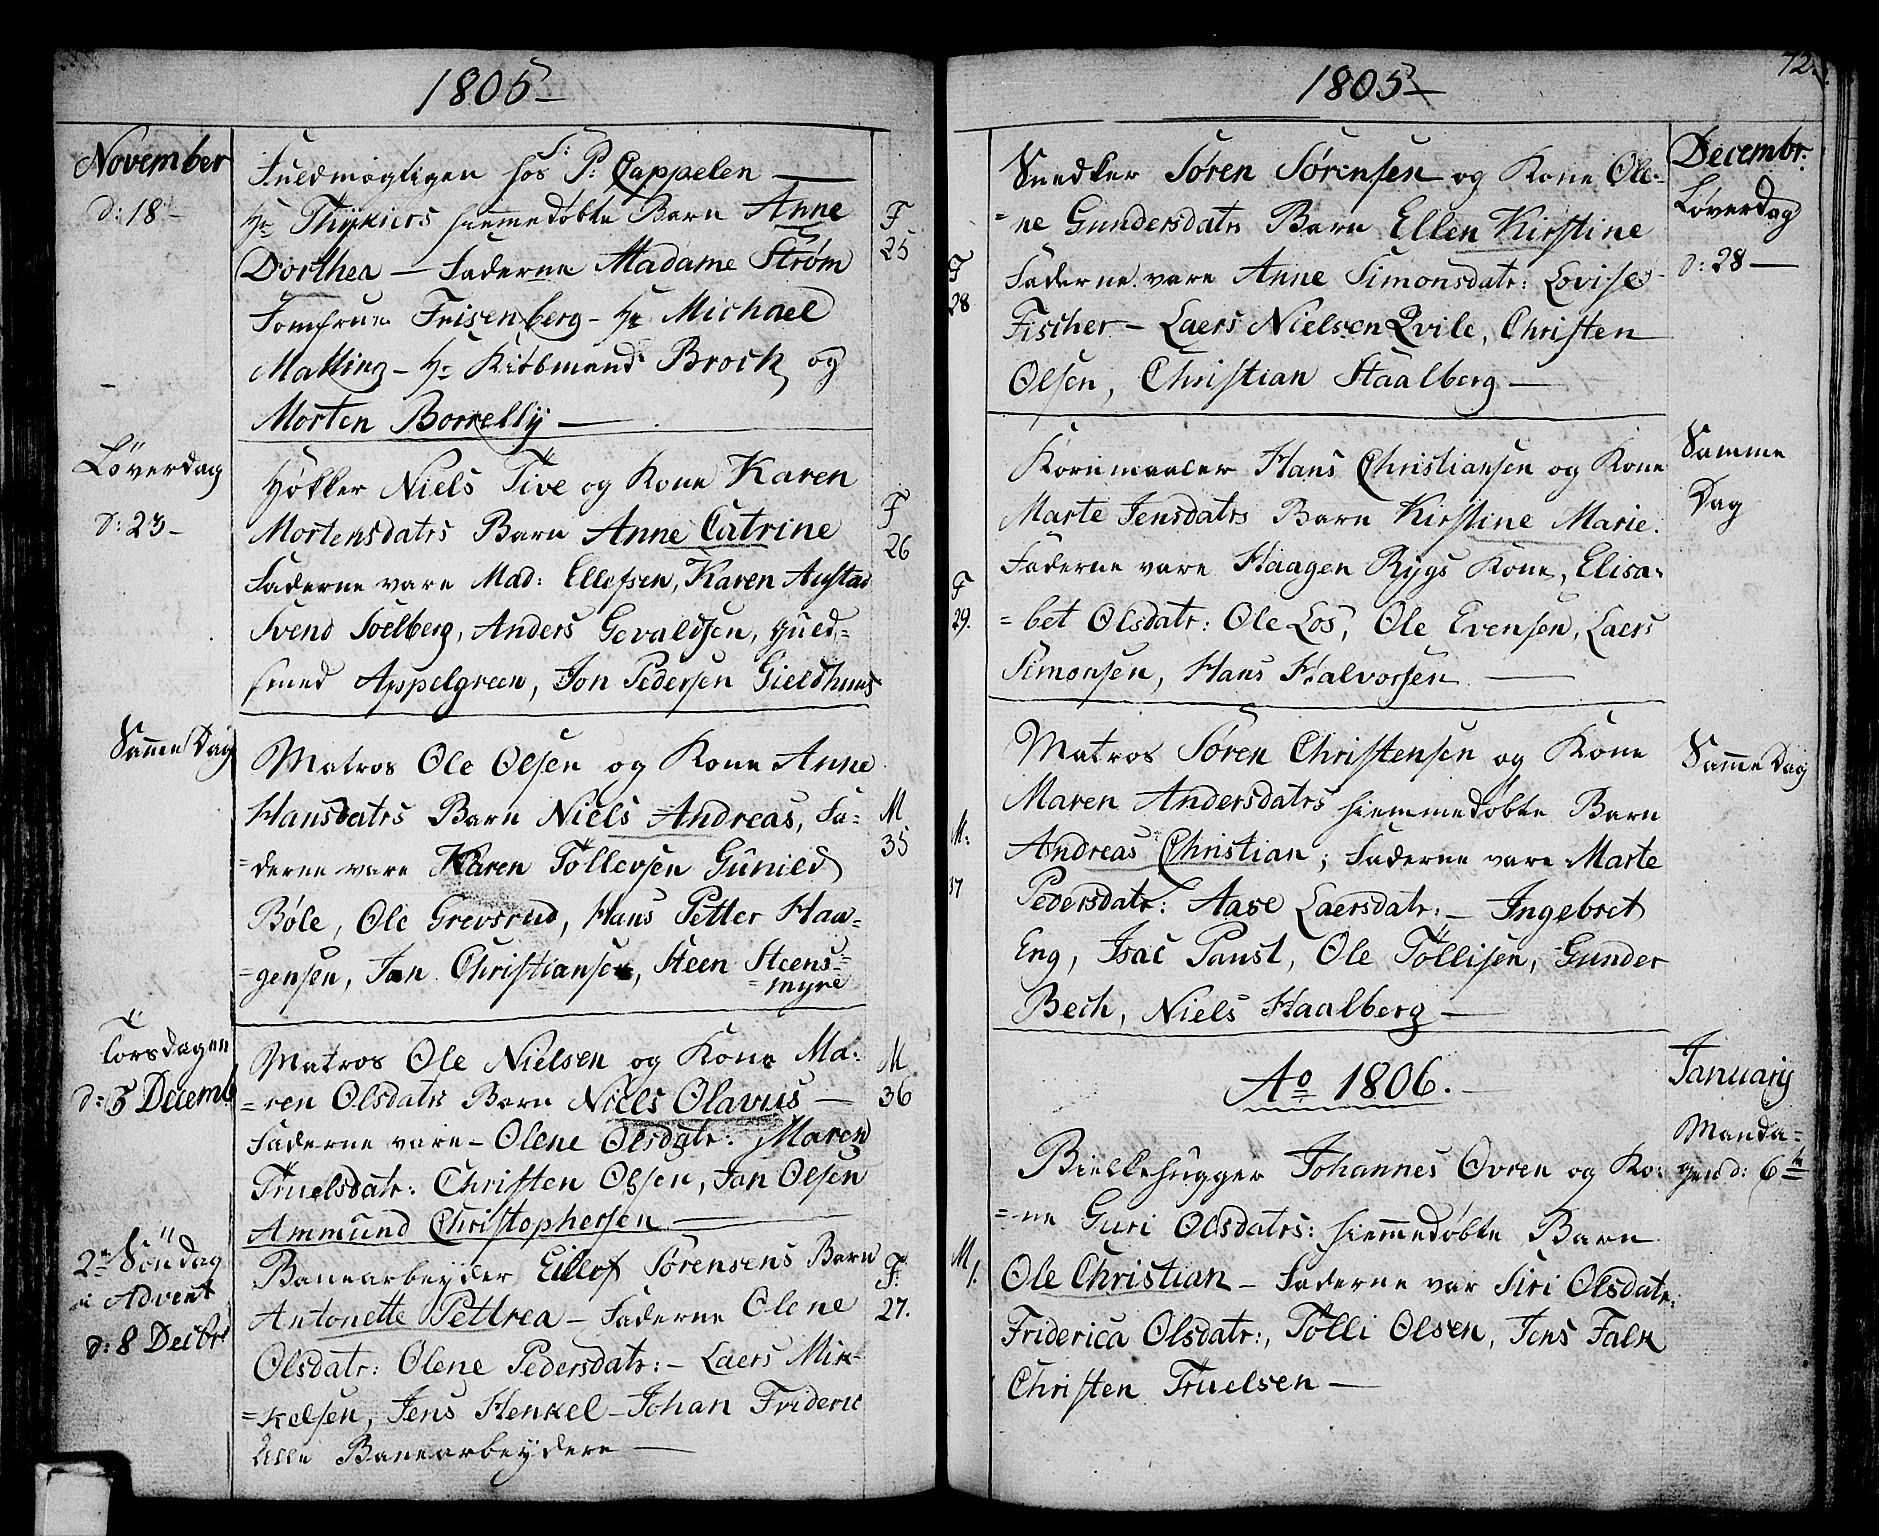 1805
November
d: 18
Fuldmægtigen hos S: P: Cappelen
Hr Thykiers hiemmedøbte Barn Anne
Dorthea — Faderne Madame Strøm
Jomfrue Frisenberg — Hr Michael
Malling — Hr Kiøbmand Brock og
Morten Borrelly —
F
25
Løverdag
d: 23
Høkker Niels Tive og Kone Karen
Mortensdatrs Barn Anne Catrine
Faderne vare Mad: Ellefsen, Karen Austad
Svend Soelberg, Anders Gevaldsen, Guld=
smed Appelgreen, Jon Pedersen Gieldhuus
F
26
Samme Dag
Matros Ole Olsen og Kone Anne
Hansdatrs Barn Niels Andreas, Fa=
=derne vare Karen Tollevsen Gunild
Bøle, Ole Grevsrud, Hans Petter Haa=
=gensen, Jan Christiansen, Steen Steens=
=myre
M
35
Torsdagen
d: 5 Decemb
Matros Ole Nielsen og Kone Ma=
=ren Olsdatrs Barn Niels Olavus —
Faderne vare — Olene Olsdatr: Maren
Truelsdatr: Christen Olsen, Jan Olsen
Ammund Christophersen —
M
36
2n Søndag
i Advent
d: 8 Decbr
Banearbeyder Ellef Sørensens Barn
Antonette Pettrea — Faderne Olene
Olsdatr: Olene Pedersdatr: — Laers Mik=
=kelsen, Jens Henkel — Johan Frideric
Alle Banearbeydere —
F:
27.
1805
72.
Decembr:
Løverdag
d: 28 —
Snedker Søren Sørensen og Kone Ole=
=ne Gundersdatrs Barn Ellen Kirstine
Faderne vare Anne Simonsdatr: Lovise
Fischer — Laers Nielsen Qvile, Christen
Olsen, Christian Staalberg —
F
28
Samme
Dag
Kornmaaler Hans Christiansen og Kone
Marte Jensdatrs Barn Kirstine Marie.
Faderne vare Haagen Rygs Kone, Elisa=
=bet Olsdatr: Ole Los, Ole Evensen, Laers
Simonsen, Hans Halvorsen —
F
29.
Samme Dag
Matros Søren Christensen og Kone
Maren Andersdatrs hiemmedøbte Barn
Andreas Christian; Faderne vare Marte
Pedersdatr: Aase Laersdatr: — Ingebret
Eng, Isac Paust, Ole Tollisen, Gunder
Bech, Niels Haalberg —
M:
37
Ao 1806.
January
Manda=
gen d: 6te
Bielkehugger Johannes Ovren og Ko=
=ne Guri Olsdatrs: hiemmedøbte Barn
Ole Christian — Faderne var Siri Olsdatr:
Friderica Olsdatr:, Tolli Olsen, Jens Falk
Christen Truelsen —
M
1.